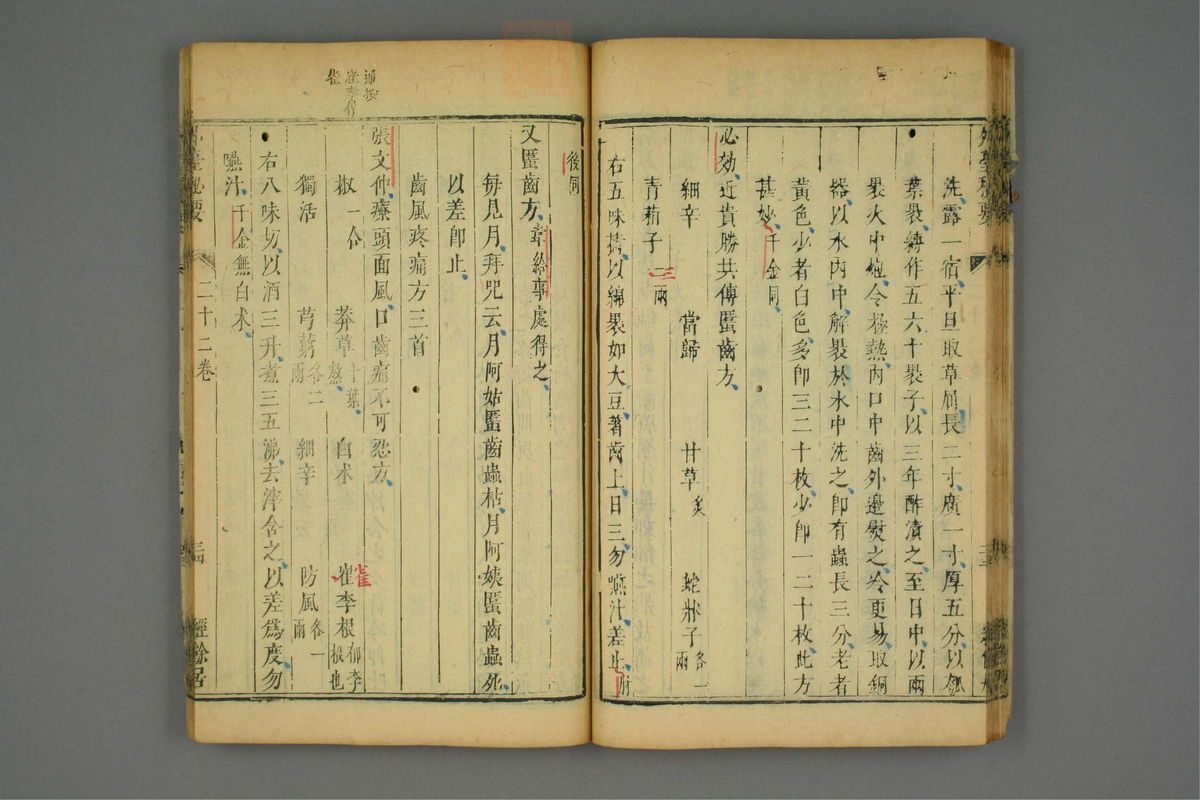 洗露一宿平旦取草屈長二寸廣一寸厚五分以
葉裹縛作五六十裹子以三年酢漬之至日中以兩
裹火中炮令極熱內口中齒外邊熨之冷更易取銅
器以水內中解裹於水中洗之即有蟲長三分老者
黃色少者白色多即三二十枚少即一二十枚此方
甚妙千金同
必效近貴勝共傳䘌齒方
細辛 當歸 甘草炙 蛇牀子各一兩
青葙子三二兩
右五味擣以綿裹如大豆著齒上日三勿嚥汁差止
後同
又䘌齒方韋給事處得之
每見月拜咒云月阿姑䘌齒蟲枯月阿姨䘌齒蟲死
以差即止
齒風疼痛方三首
張文仲療頭面風口齒痛不可忍方
椒一合 莽草十葉熬 白朮 崔李根郁李根也
雀
獨活 芎藭各二兩 細辛 防風各一兩
右八味切以酒三升煮三五沸去滓含之以差為度勿
嚥汁千金無白朮
二十二卷
經餘居
崔李